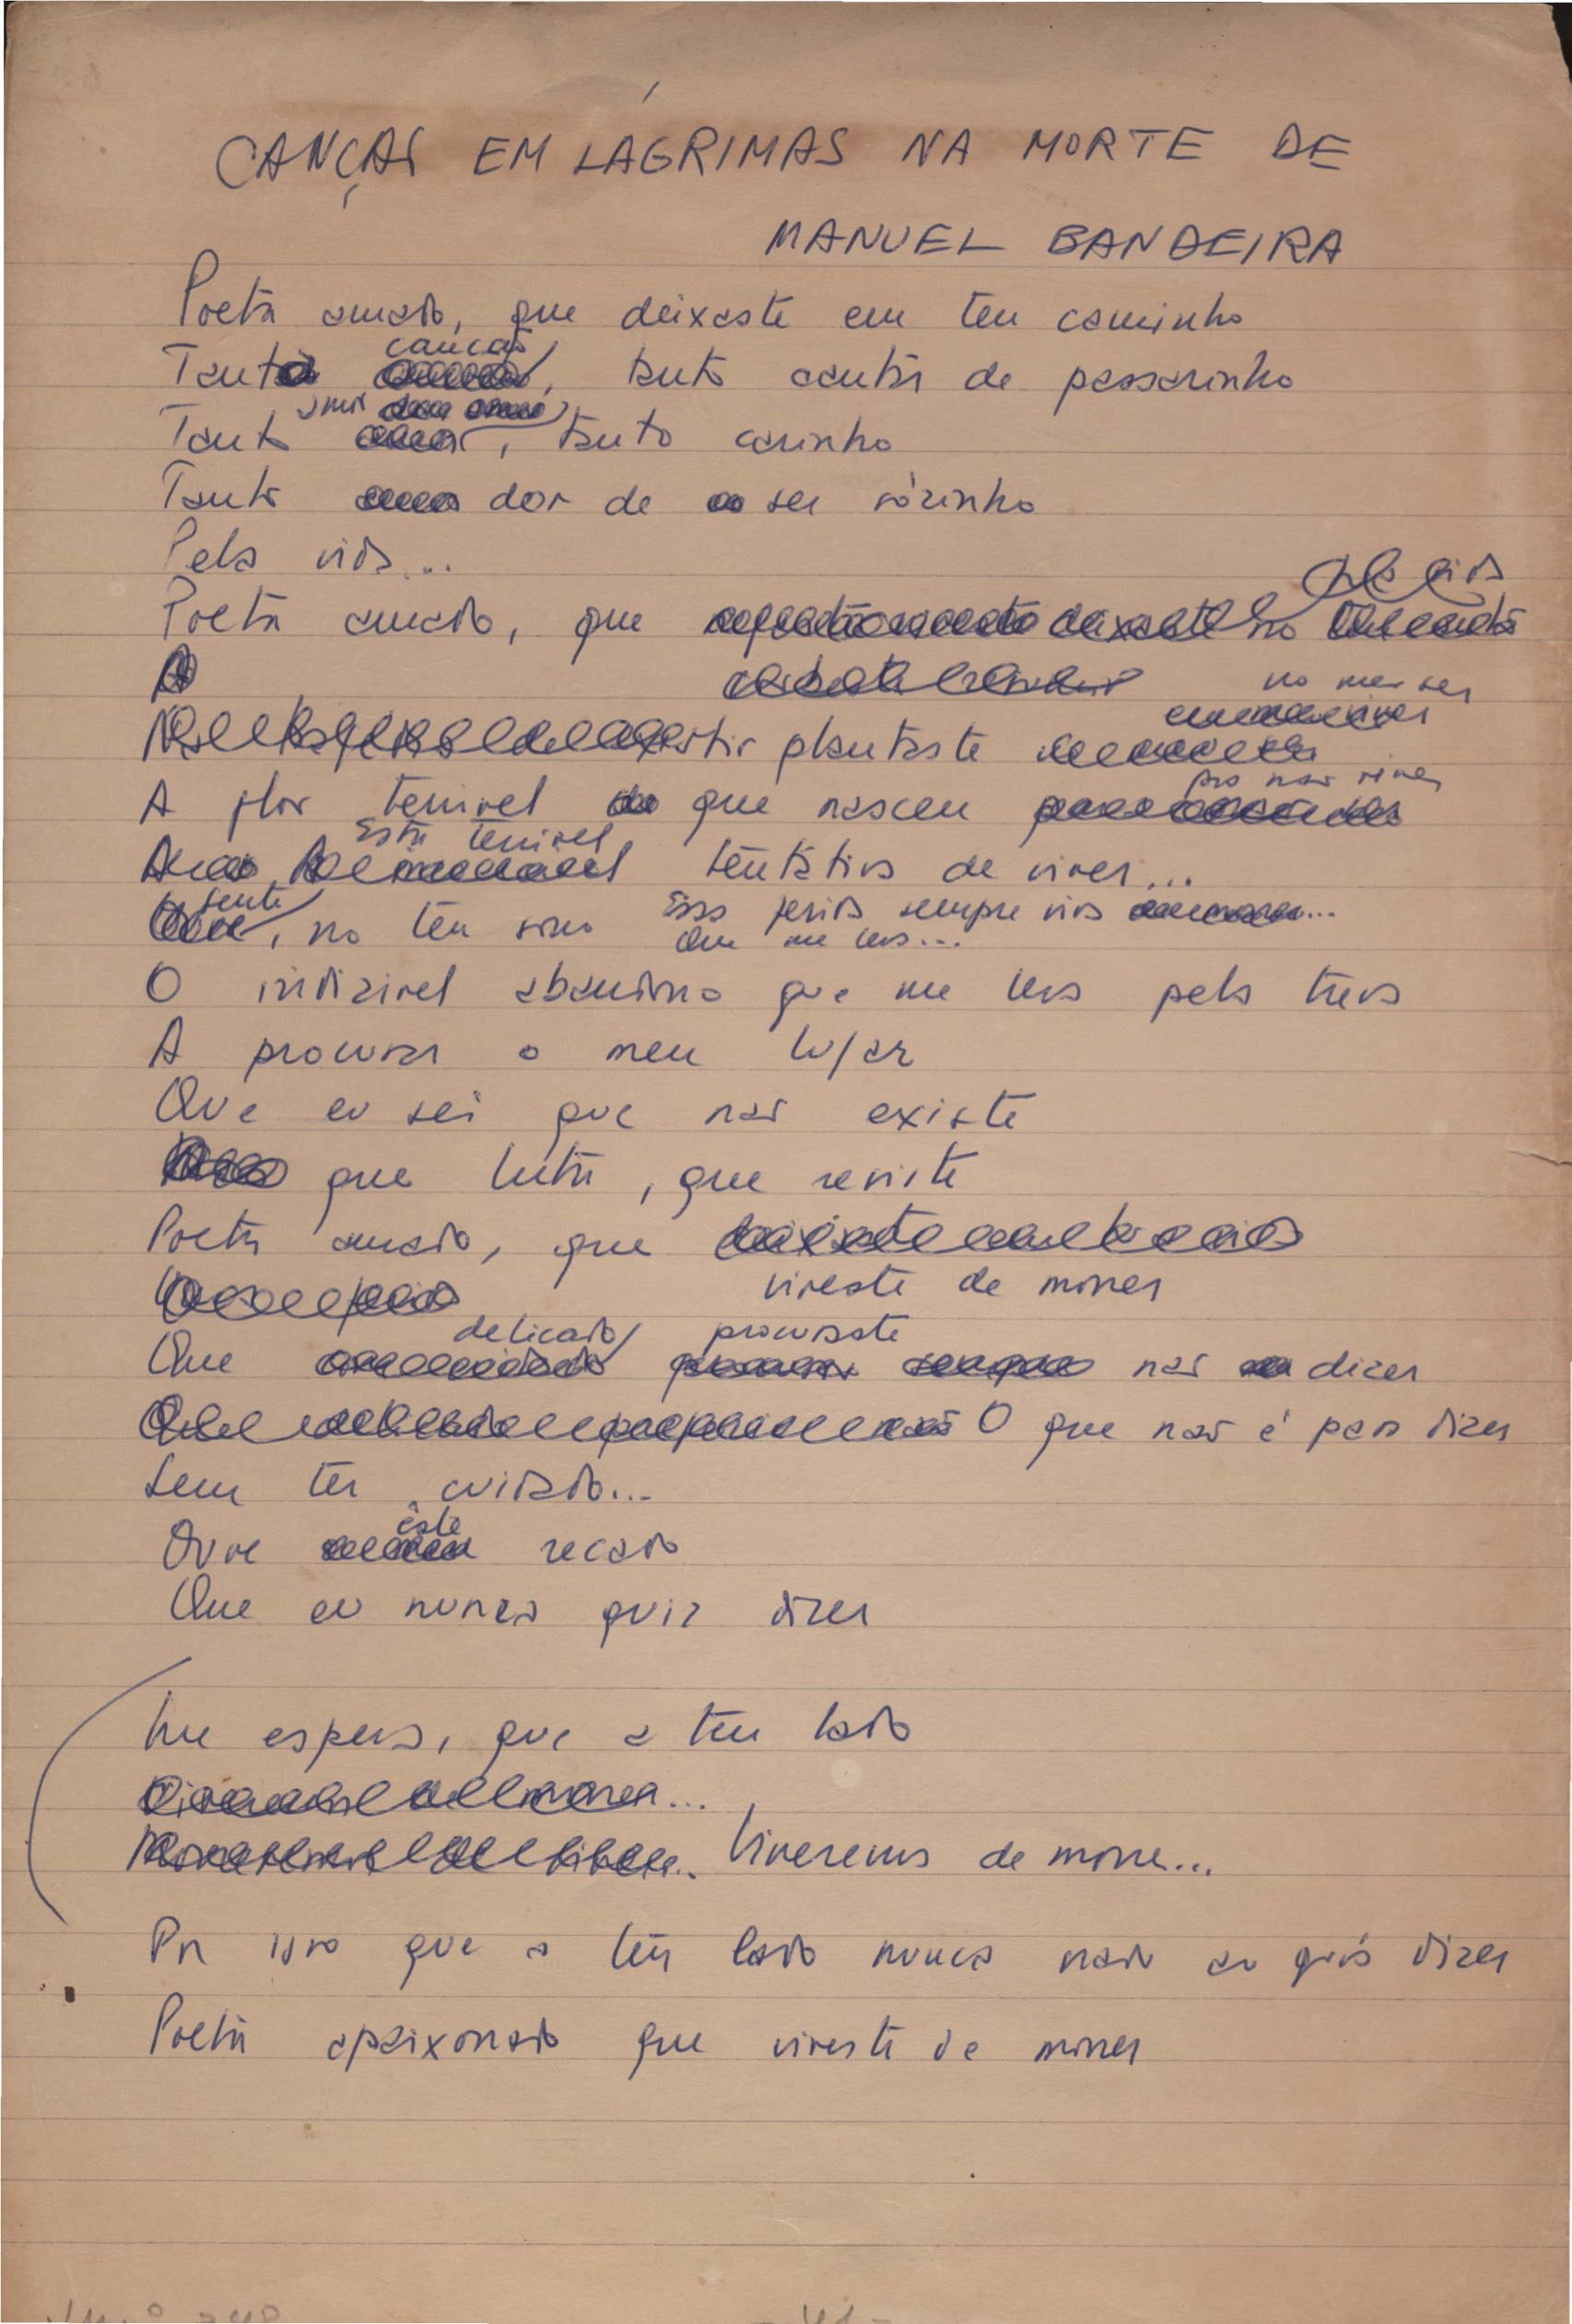 CANÇÃO EM LÁGRIMAS NA MORTE DE
MANUEL BANDEIRA
Poeta amado, que deixaste em teu caminho
canção
Tanta, tanto cantar de passarinho
amor
Tanto, tanto carinho
Tanta dor de ser sòzinho
Pela vida...
Poeta amado, que
no meu ser
plantaste
pra não viver
A flor terrível que nasceu
Esta terrível
tentativa de viver...
Sente
, no teu sono
Essa ferida sempre viva
Que me leva...
O indizível abandono que me leva pela treva
A procurar o meu lugar
Que eu sei que não existe
que luta, que resiste
Poeta amado, que
viveste de morrer
delicado procuraste
Que não dizer
O que não é para dizer
Sem ter cuidado...
êste
Ouve recado
Que eu nunca quiz dizer
Me espera, que a teu lado
Viveremos de morrer...
Por isso que a teu lado nunca nada eu quis dizer
Poeta apaixonado que viveste de morrer